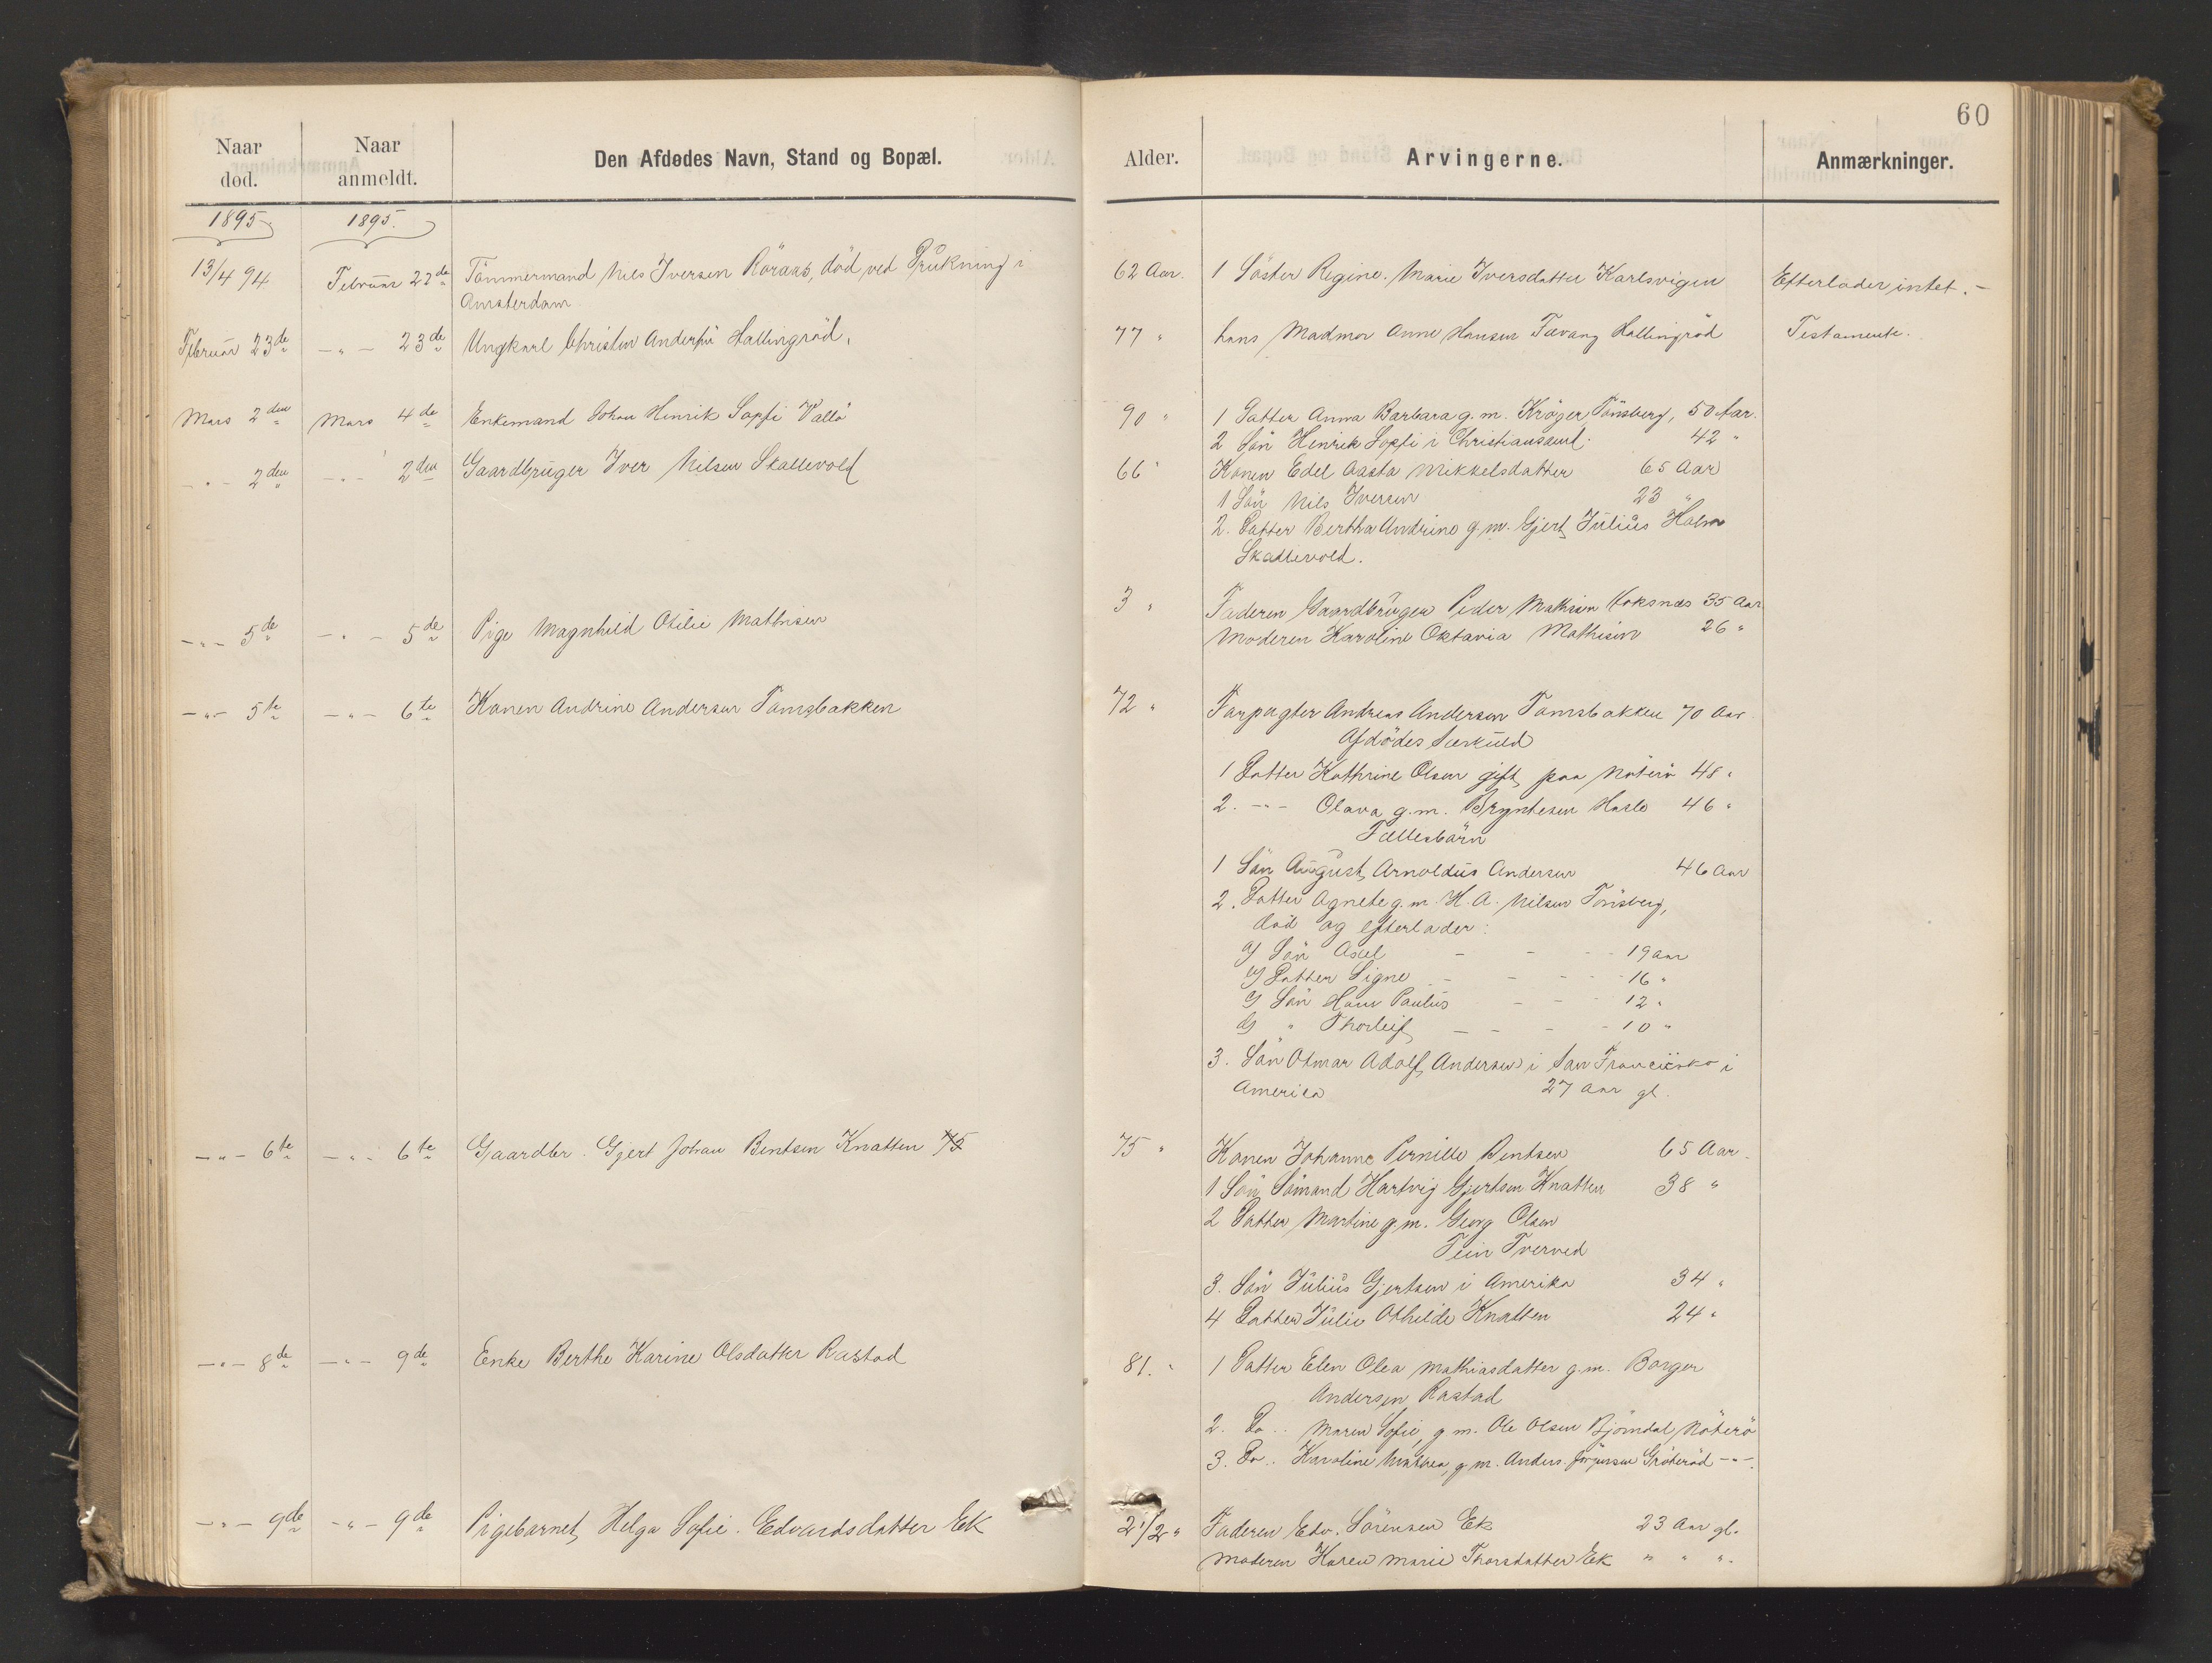 60
Naar død.
Naar anmeldt.
Den Afdødes Navn, Stand og Bopæl.
Alder.
Arvingerne.
Anmærkninger.
1895
1895.
13/4 94 Februar 22de Tömmermand Nils Iversen Röraas, död ved Drukning i
Amsterdam
62 Aar. 1 Söster Regine Marie Iversdatter Karlsvigen Efterlader intet.-
Februar 23de -"- 23de Ungkarl Christen Andersen Hallingröd.
77 " hans Madmor Anne Hansen Tavang Hallingröd Testamente.
Mars 2den Mars 4de Enkemand Johan Henrik Sopfi Vallö
90 " 1 Datter Anna Barbara g.m. Kröger Tönsberg, 50 Aar.
2 Sön Henrik Sopfi i Christianssund. 42 "
-"- 2den -"- 2den Gaardbruger Iver Nilsen Skallevold
66 " Konen Edel Aasta Mikkelsdatter 65 Aar
1 Sön Nils Iversen 23 "
2. Datter Bertha Andrine g.m. Gjert Julius Holm
Skallevold.
-"- 5de -"- 5de Pige Magnhild Otilie Mathisen
3 " Faderen Gaardbruger Peder Mathisen 35 Aar
Moderen Karoline Oktavia Mathisen 26 "
-"- 5te -"- 6te Konen Andrine Andersen Tomsbakken
72 " Forpagter Andreas Andersen Tomsbakken 70 Aar
Afdödes Særkuld
1 Datter Kathrine Olsen gift paa Nöterö 48 "
2. -"- Olava g.m. Bryntesen Hasle 46 "
Fællesbörn
1 Sön August Arnoldus Andersen 46 Aar
2. Datter Agnete g.m. H.A. Nilsen Tönsberg,
död og efterlader:
a) Sön Axel - - - 19 aar
b) Datter Signe - - - 16 "
c) Sön Hans Paulus - - 12 "
d) " Thorleif - - - 10 "
3. Sön Otmar Adolf Andersen i San Francisko i
Amerika 27 aar gl.
-"- 6te -"- 6te Gaardbr. Gjert Johan Bentsen Knatten 75
75 " Konen Johanne Pernille Bentsen 65 Aar.
1 Sön Sömand Hartvig Gjertsen Knatten 38 "
2 Datter Martine g.m. Georg Olsen
Tein Tverved
3. Sön Julius Gjertsen i Amerika 34 "
4 Datter Julie Othilde Knatten 24 "
-"- 8de -"- 9de Enke Berthe Karine Olsdatter Rastad
81. " 1 Datter Elen Olea Mathiasdatter g.m. Borger
Andersen Rastad
2. Do.. Maren Sofie, g m. Ole Olsen Bjömdal Nöterö
3. Do.. Karoline Mathea, g m. Anders Jörgensen Gröteröd -"-.
-"- 9de -"- 9de Pigebarnet Helga Sofie Edvardsdatter Ek
2 1/2 " Faderen Edv. Sörensen Ek 23 Aar gl.
Moderen Karen Marie Thorsdatter Ek " " ".